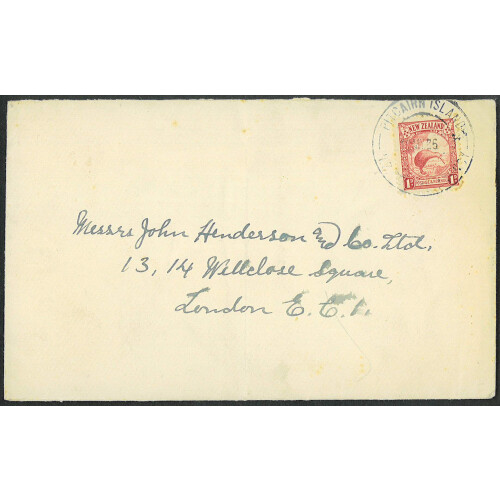 PITCAIRN ISLAND
NEW ZEALAND
1D 1D
Messrs John Henderson and Co. Ltd,
13, 14 Wellclose Square,
London E.C.1.